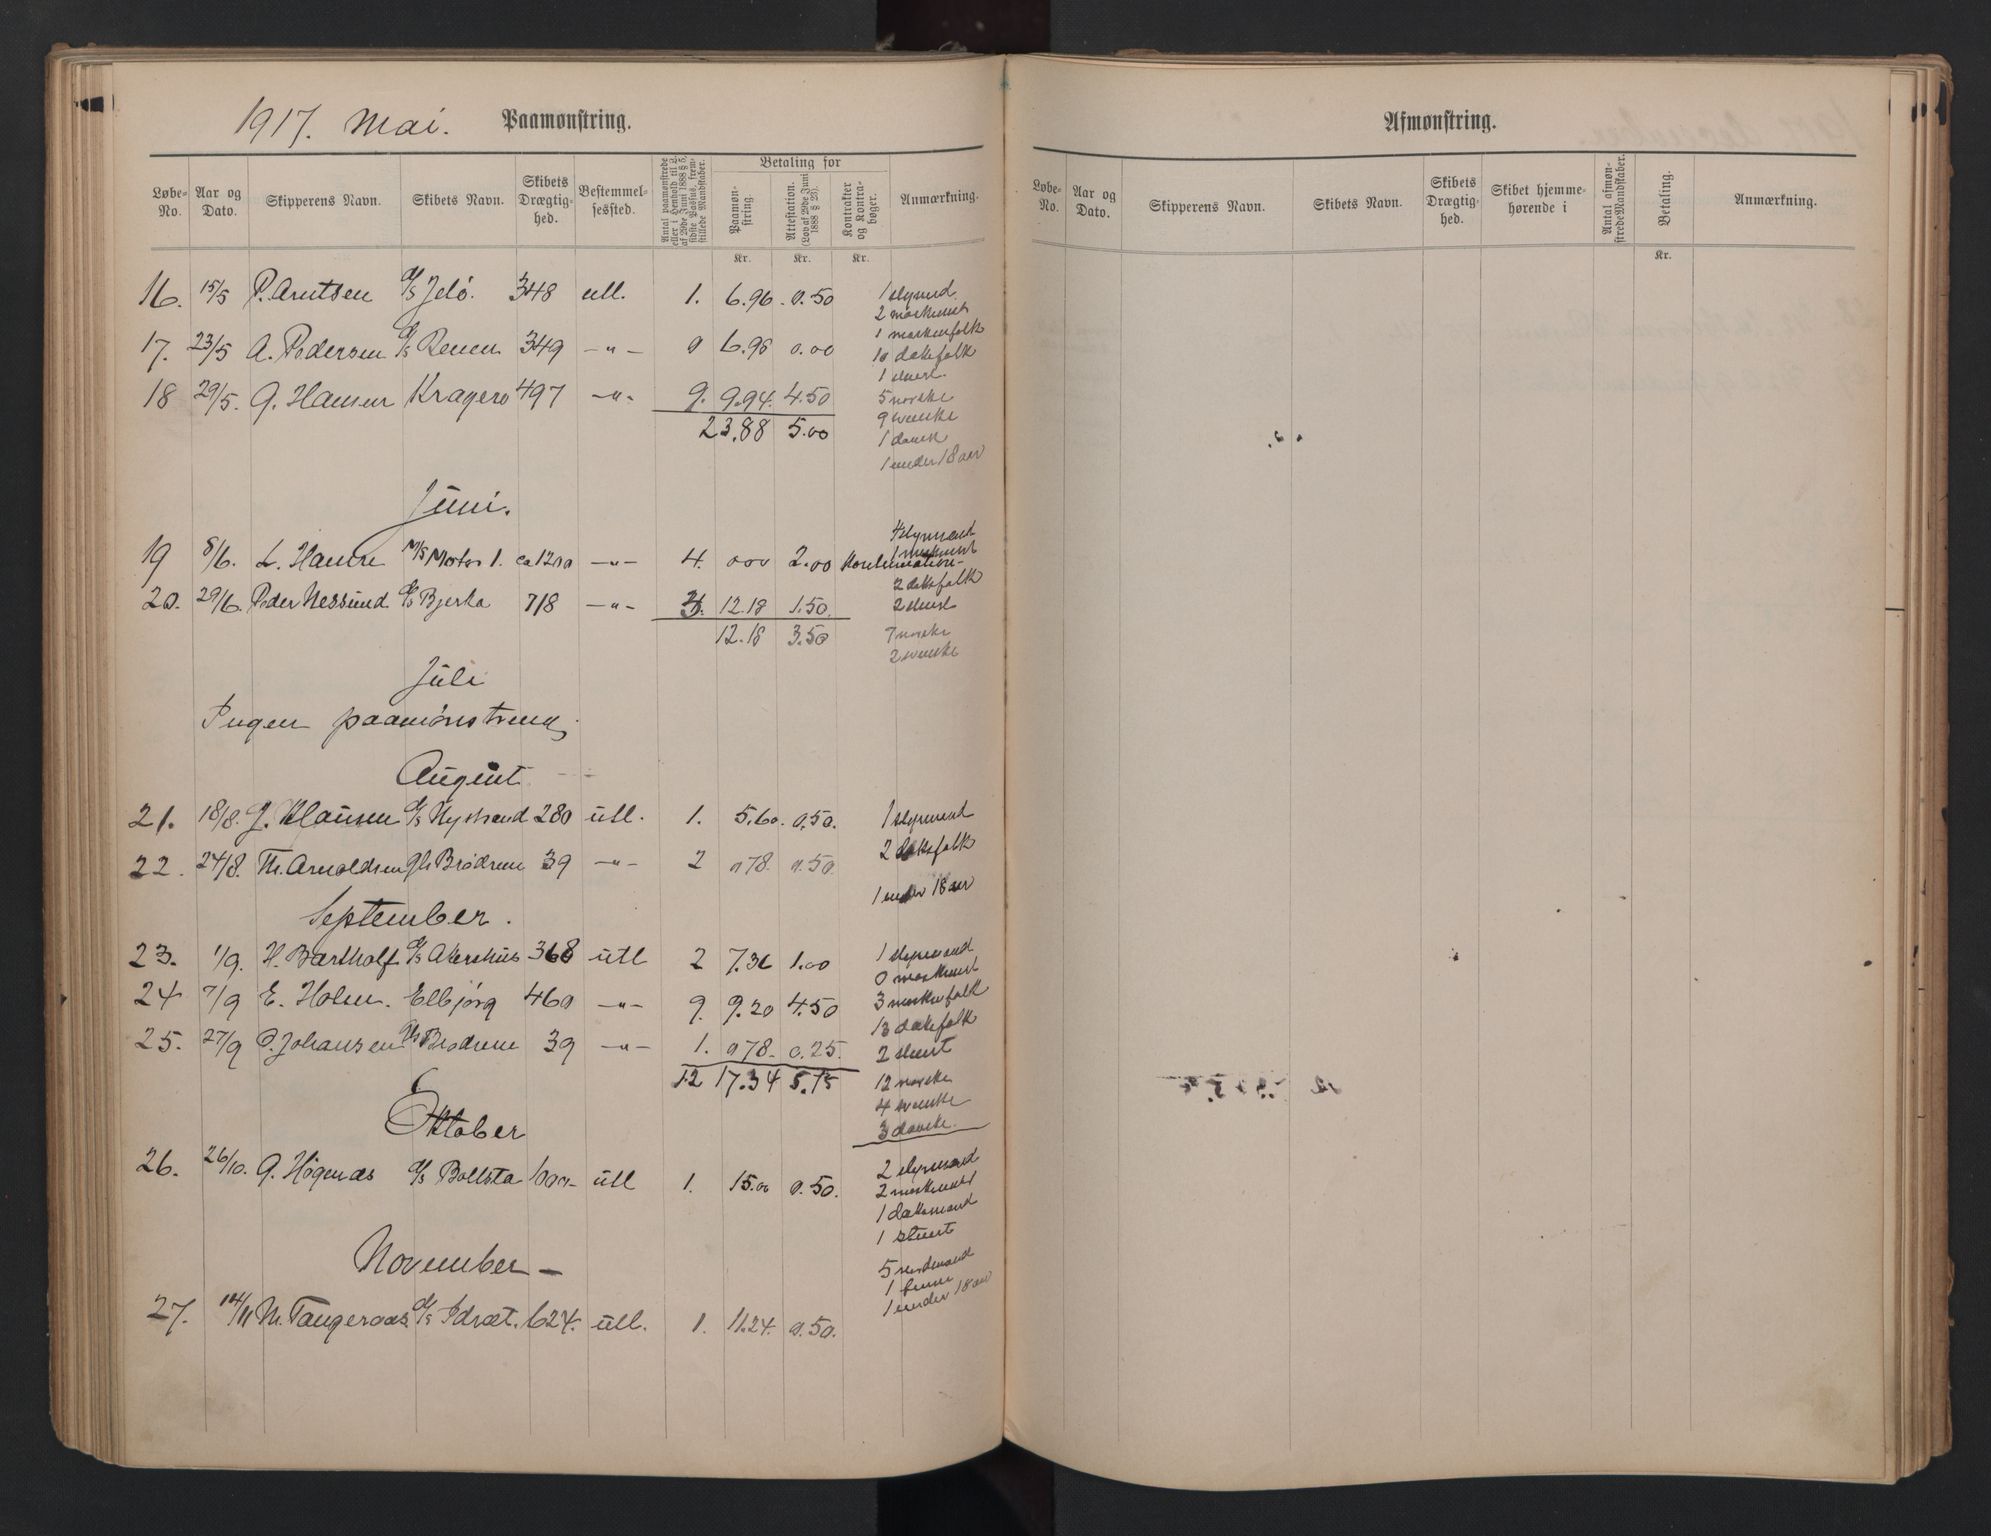 1917. Mai. Paamønstring.
Løbe-No. Aar og Dato. Skipperens Navn. Skibets Navn. Skibets Drægtig-hed. Bestemmel-sessted. Antal paamønstrede eller i Henhold til L. af 29de Juni 1888 § 5, sidste Passus, frem-stillede Mandskaber. Betaling for Paamøn-string. Attestation. (Lov af 29de Juni 1888 § 23). Kontrakter og Kontra-bøger. Anmærkning.
Kr. Kr. Kr.
16. 15/5 P. Arntsen D/S Jelø. 348 utl. 1. 6.96. 0.50 1 styrmd.
2 maskinist
17. 23/5 A. Pedersen D/S Renen 349 —"— 0 6.98 0.00 1 maskenfolk
10 dæksfolk
1 stuert.
18 29/5. G. Hansen Kragerø 497 —"— 9. 9.94. 4.50 5 norske
9 svenske
23.88 5.00 1 dansk
1 under 18 aar
Juni.
4 styrmænd
1 maskinist
19 8/6. L. Hansen M/S Motor 1. ca 1200 —"— 4. 000 2.00 Kontinuation-
2 dæksfolk
20. 29/6. Peder Nessund D/S Bjerka 718 —"— 3. 12.18 1.50. 2 stuert
12.18 3.50 7 norske
2 svenske
Juli
Ingen paamønstring.
August
21. 18/8. J. Klausen D/S Nystrand 280 utl. 1. 5.60. 0.50. 1 styrmand
22. 24/8. Th. Arnoldsen Gls Brødrene 39 —"— 2 078. 0.50. 2 dæksfolk
1 under 18 aar
September.
23. 1/9. H. Bartholf D/S Akershus 368 utl 2 7.36 1.00 1 styrmand
0 maskinist
24 7/9 E. Holm. Elbjørg 460 —"— 9. 9.20 4.50 3 maskinfolk
13 dæksfolk
25. 27/9 P. Johansen Gls Brødrene 39 —"— 1. 078. 0.25. 2 stuert
12 17.34 5.75 12 norske
4 svenske
3 danske.
Oktober
26. 26/10. G. Høgenæs D/S Bollsta 1000- utl 1. 15.00 0.50. 2 styrmand
2 maskinist
1 dæksmand
1 stuert
November —
5 nordmænd
1 finne
1 under 18 aar
27. 14/11 M. Tangeraas. D/S Idræt. 624. utl. 1. 11.24. 0.50.
Afmønstring.
Løbe-No. Aar og Dato. Skipperens Navn. Skibets Navn. Skibets Drægtig-hed. Skibet hjemme-hørende i Antal afmøn-strede Mandskaber. Betaling. Anmærkning.
Kr.